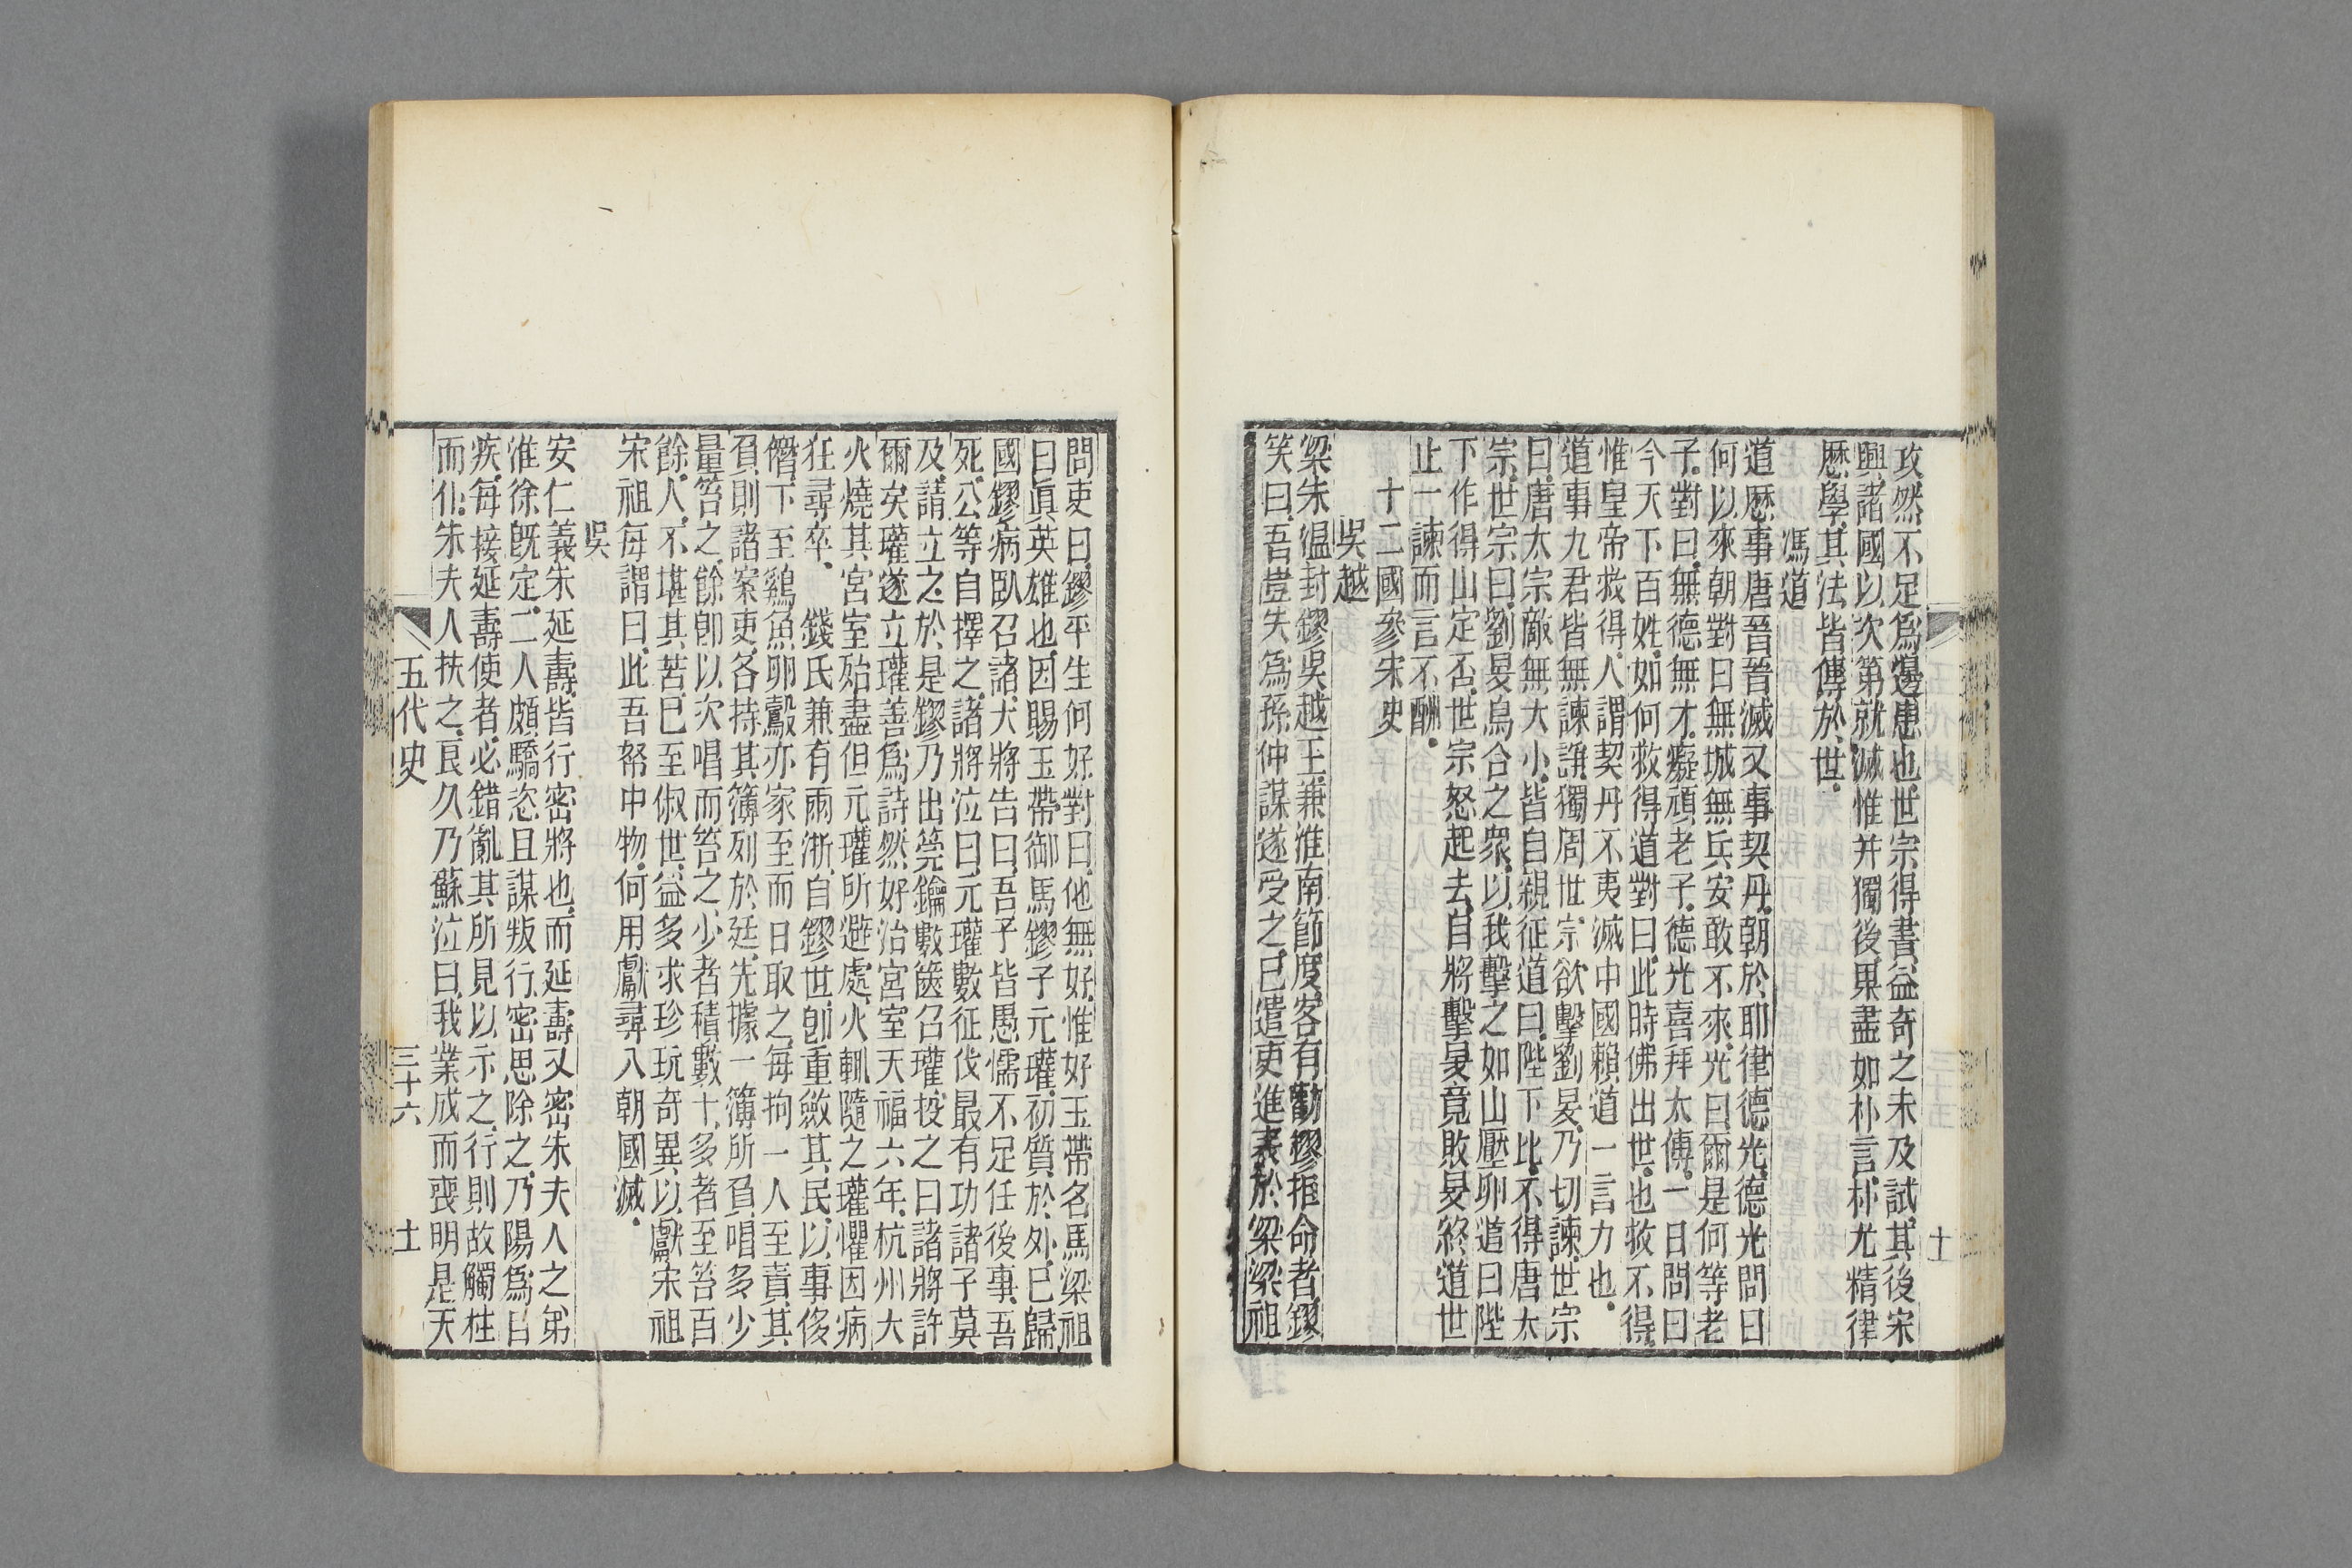 攻然不足爲邊患也世宗得書益奇之未及試其後宋
興諸國以次第就滅惟并獨後果盡如朴言朴尤精律
歷學其法皆傳於世
馮道
道歷事唐晉晉滅又事契丹朝於耶律德光德光問曰
何以來朝對曰無城無兵安敢不來光曰爾是何等老
子對曰無德無才癡頑老子德光喜拜太傅一日問曰
今天下百姓如何救得道對曰此時佛出世也救不得
惟皇帝救得人謂契丹不夷滅中國賴道一言力也
道事九君皆無諫諍獨周世宗欲擊劉旻乃切諫世宗
曰唐太宗敵無大小皆自親征道曰陛下比不得唐太
宗世宗曰劉旻烏合之衆以我擊之如山壓卵道曰陛
下作得山定否世宗怒起去自將擊旻竟敗旻終道世
止一諫而言不酬
十二國參宋史
吳越
梁朱溫封鏐吳越王兼淮南節度客有勸鏐拒命者鏐
笑曰吾豈失爲孫仲謀遂受之已遣吏進表於梁梁祖
問吏曰鏐平生何好對曰他無好惟好玉帶名馬梁祖
曰眞英雄也因賜玉帶御馬鏐子元瓘初質於外已歸
國鏐病臥召諸大將告曰吾子皆愚懦不足任後事吾
死公等自擇之諸將泣曰元瓘數征伐最有功諸子莫
及請立之於是鏐乃出筦鑰數篋召瓘投之曰諸將許
爾矣瓘遂立瓘善爲詩然好治宮室天福六年杭州大
火燒其宮室殆盡但元瓘所避處火輒隨之瓘懼因病
狂尋卒 錢氏兼有兩浙自鏐世卽重斂其民以事侈
僭下至鷄魚卵鷇亦家至而日取之每拘一人至責其
負則諸案吏各持其簿列於廷先據一簿所負唱多少
量笞之餘卽以次唱而笞之少者積數十多者至笞百
餘人不堪其苦已至俶世益多求珍玩奇異以獻宋祖
宋祖每謂曰此吾帑中物何用獻尋入朝國滅
吳
安仁義朱延壽皆行密將也而延壽又密朱夫人之弟
淮徐旣定二人頗驕恣且謀叛行密思除之乃陽爲目
疾每接延壽使者必錯亂其所見以示之行則故觸柱
而仆朱夫人扶之良久乃蘇泣曰我業成而喪明是天
五代史 三十六 十一